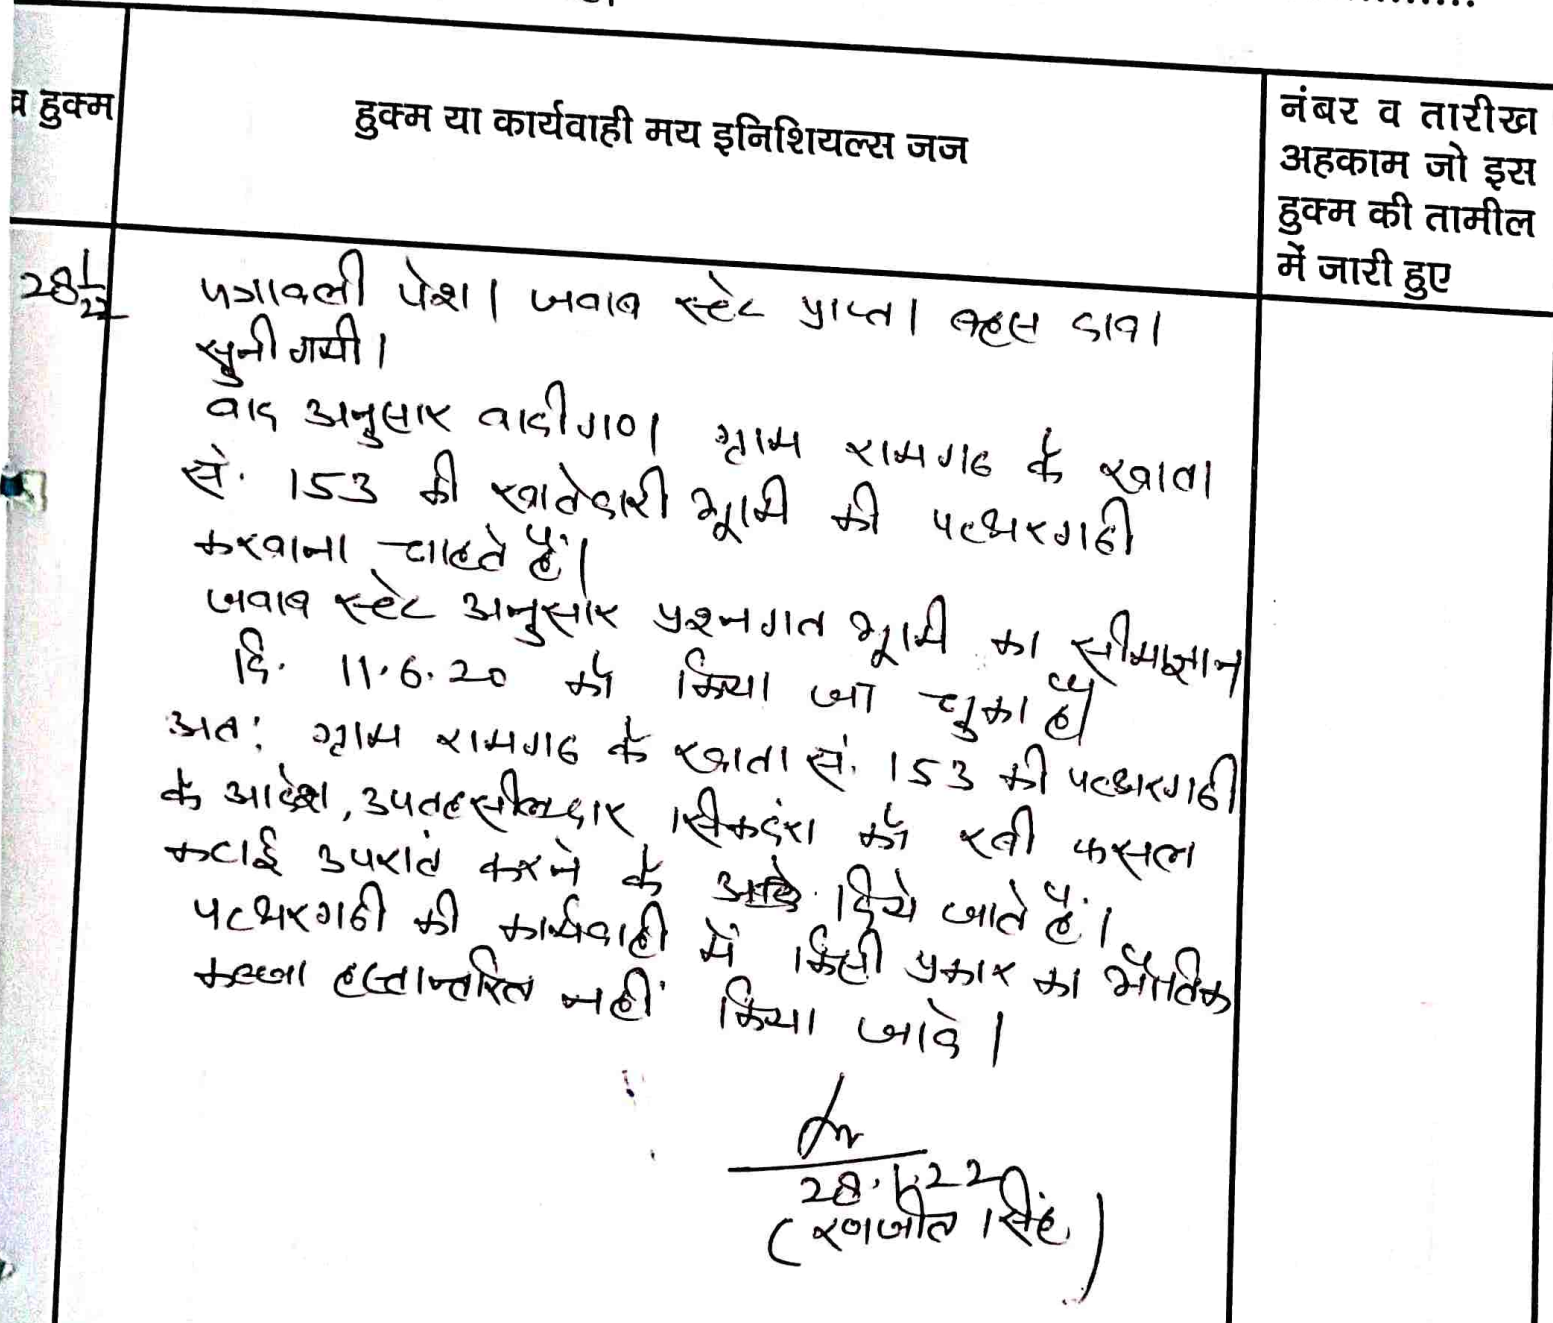 व हुक्म
हुक्म या कार्यवाही मय इनिशियल्स जज
नंबर व तारीख
अहकाम जो इस
हुक्म की तामील
में जारी हुए
28/1/22
पत्रावली पेश। जवाब स्टेट प्राप्त। बहस दावा
सुनी गयी।
वाद अनुसार वादीगण ग्राम रामगढ के खाता
सं. 153 की खातेदारी भूमि की पत्थरगढी
करवाना चाहते हैं।
जवाब स्टेट अनुसार प्रश्नगत भूमि का सीमाज्ञान
दि. 11.6.20 को किया जा चुका है।
अतः ग्राम रामगढ के खाता सं. 153 की पत्थरगढी
के आदेश, उपतहसीलदार सिकंदरा को रबी फसल
कटाई उपरांत करने के दिये जाते हैं।
पत्थरगढी की कार्यवाही में किसी प्रकार का भौतिक
कब्जा हस्तान्तरित नहीं किया जावे।
28.1.22
(रणजीत सिंह)